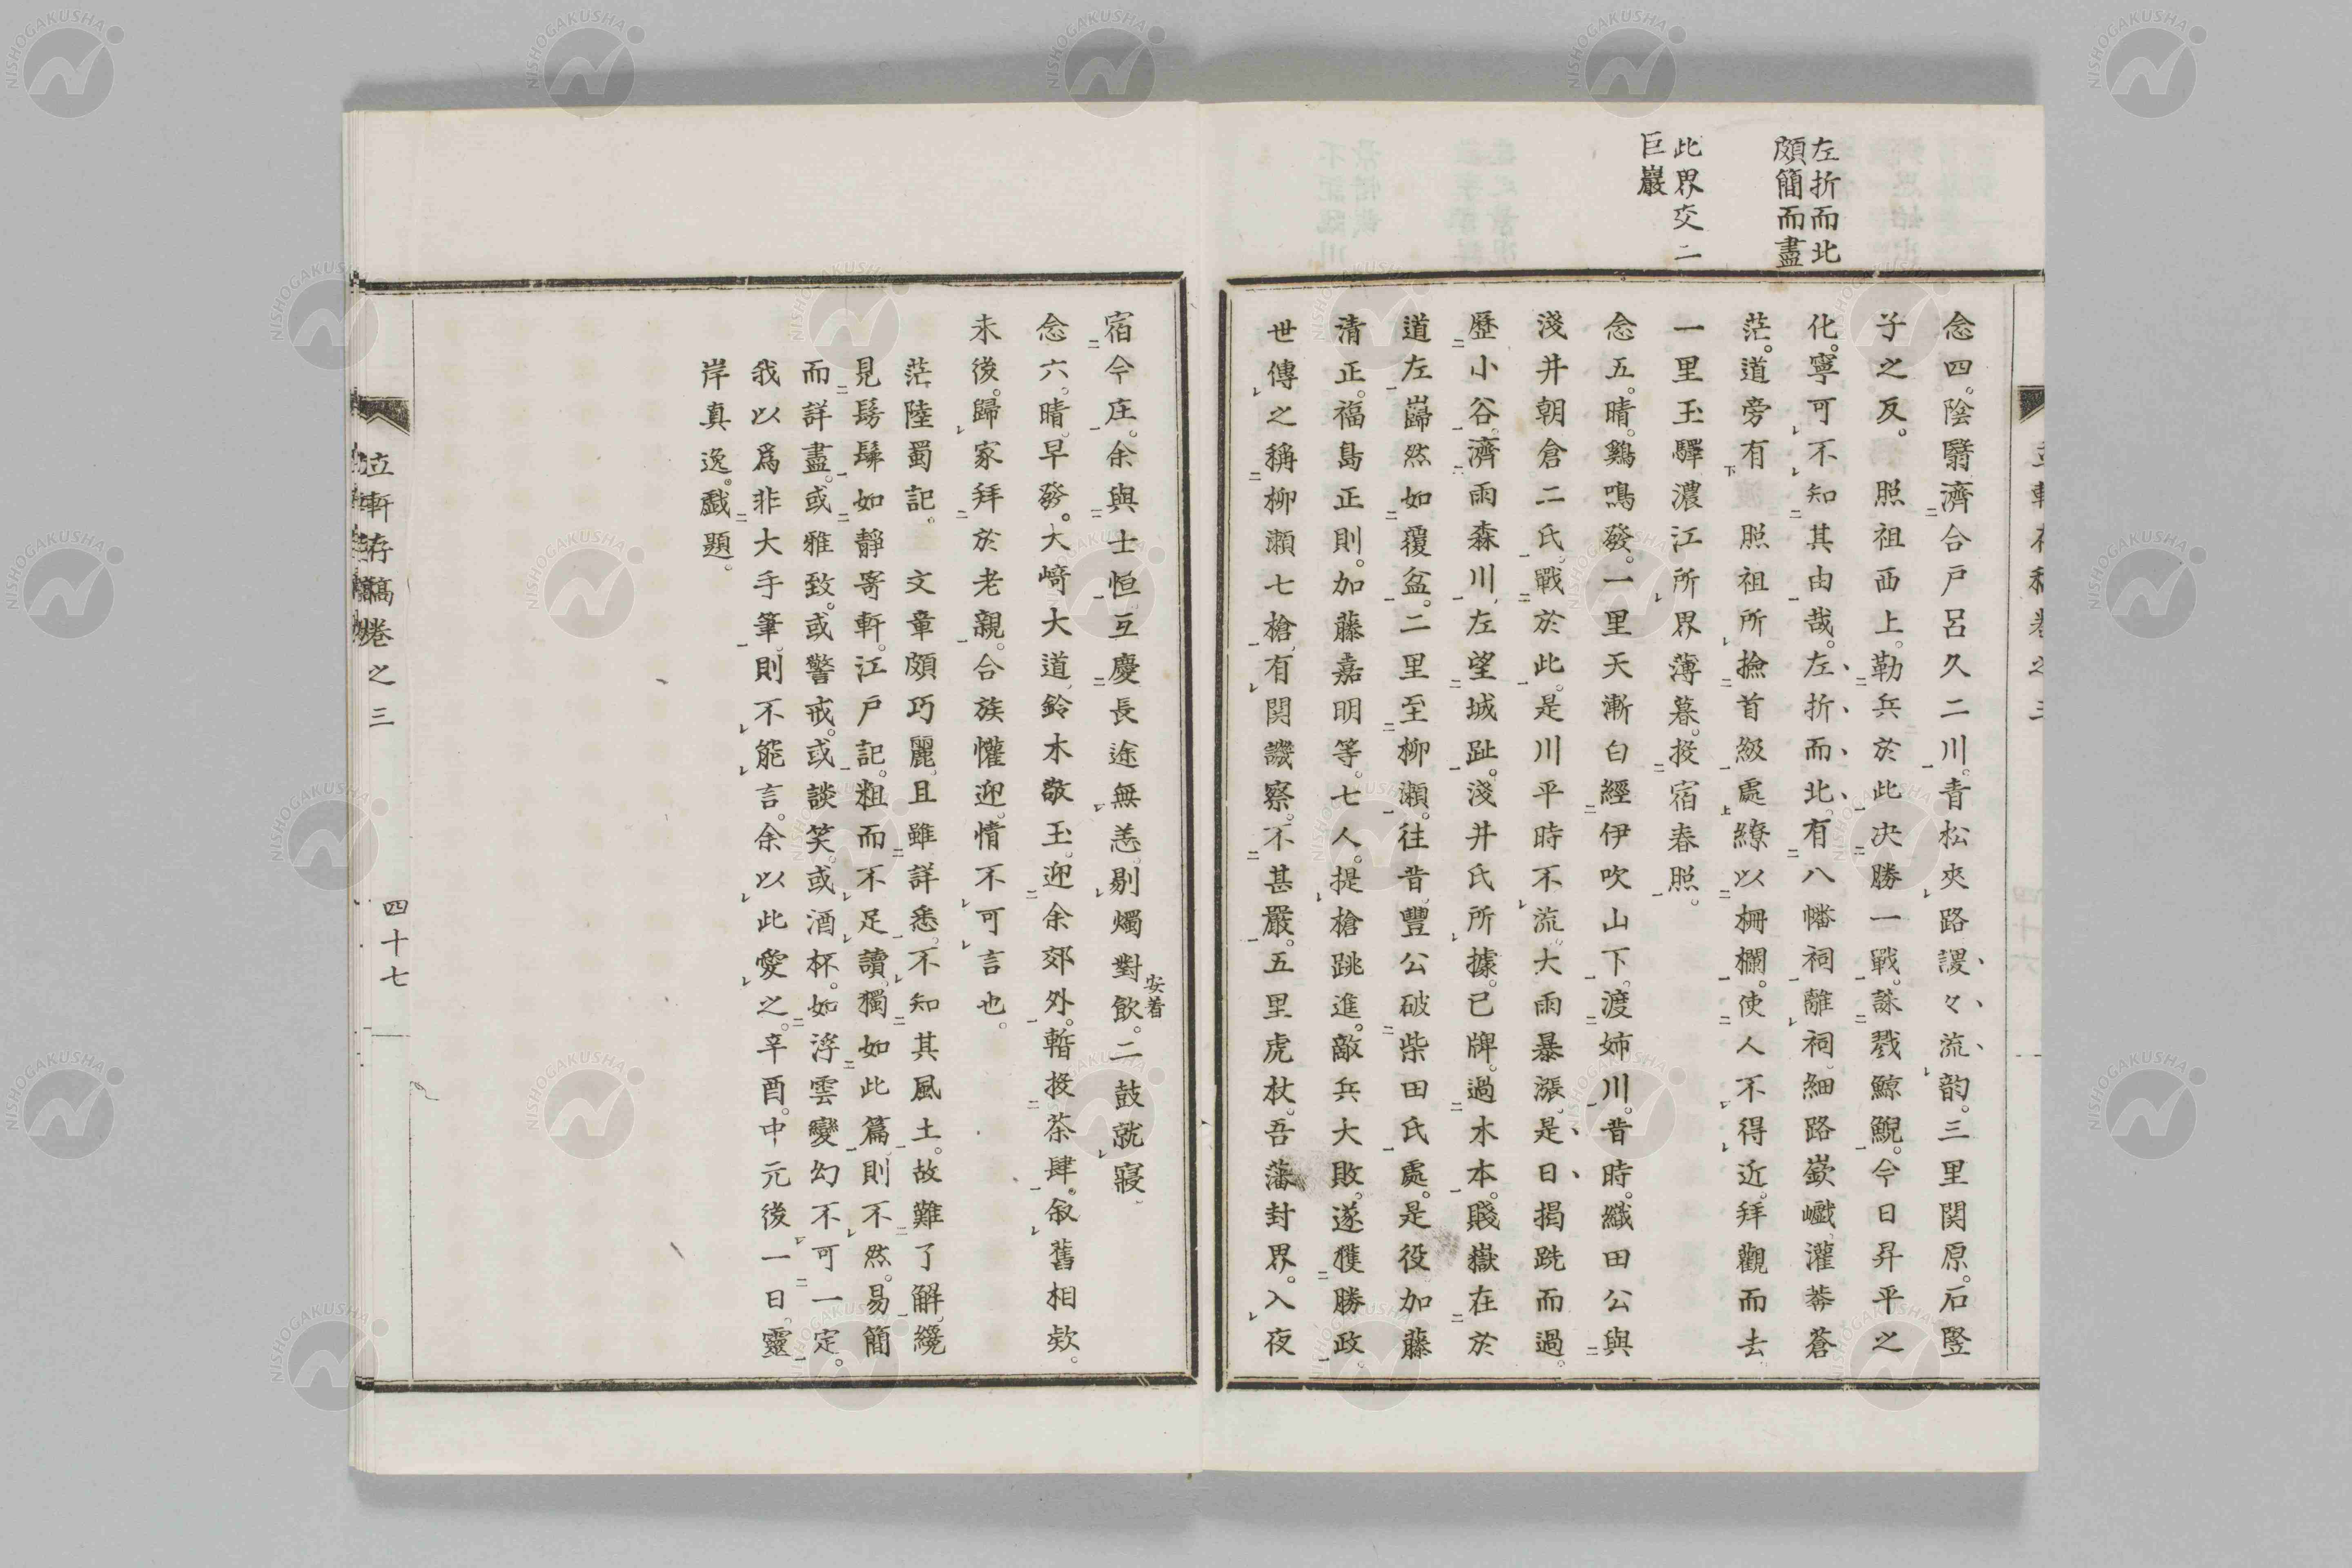 左折而北
頗簡而盡
此界交二
巨巖
念四。陰翳濟合戸呂久二川。青松夾路謖々流韵。三里関原。石竪
子之反。照祖西上。勒兵於此决勝一戰。誅戮鯨鯢。今日昇平之
化。寧可不知其由哉。左折而北。有八幡祠離祠。細路嶔巇灌莽蒼
茫。道旁有照祖所撿首級處繚以柵欄。使人不得近。拜觀而去。
一里玉驛濃江所界薄暮。投宿春照。
念五。晴。鷄鳴發。一里天漸白經伊吹山下。渡姉川。昔時。織田公與
淺井朝倉二氏。戰於此。是川平時不流。大雨暴漲。是日揭跣而過。
歷小谷。濟雨森川。左望城趾。淺井氏所據。已牌。過木本。賤嶽在於
道左巋然如覆盆。二里至柳瀬。往昔。豐公破柴田氏處。是役加藤
清正。福島正則。加藤嘉明等。七人。提槍跳進。敵兵大敗。遂獲勝政。
世傳之稱柳瀬七槍。有関譏察。不甚嚴。五里虎杖。吾藩封界。入夜
宿今庄。余與士恒互慶長途無恙。剔燭對飲。二鼓就寢。
安着
念六。晴。早發。大﨑大道鈴木敬玉。迎余郊外。暫投茶肆。叙舊相欵。
未後。歸家拜於老親。合族懽迎。情不可言也。
茫陸蜀記。文章頗巧麗且雖詳悉。不知其風土。故難了解。纔
見髣髴如靜寄軒。江戸記。粗而不足讀。獨如此篇則不然。易簡
而詳盡。或雅致。或警戒。或談笑。或酒杯。如浮雲變幻不可一定。
我以爲非大手筆。則不能言。余以此愛之。辛酉。中元後一日。靈
岸真逸。戲題。
立軒存稿卷之三
四十七